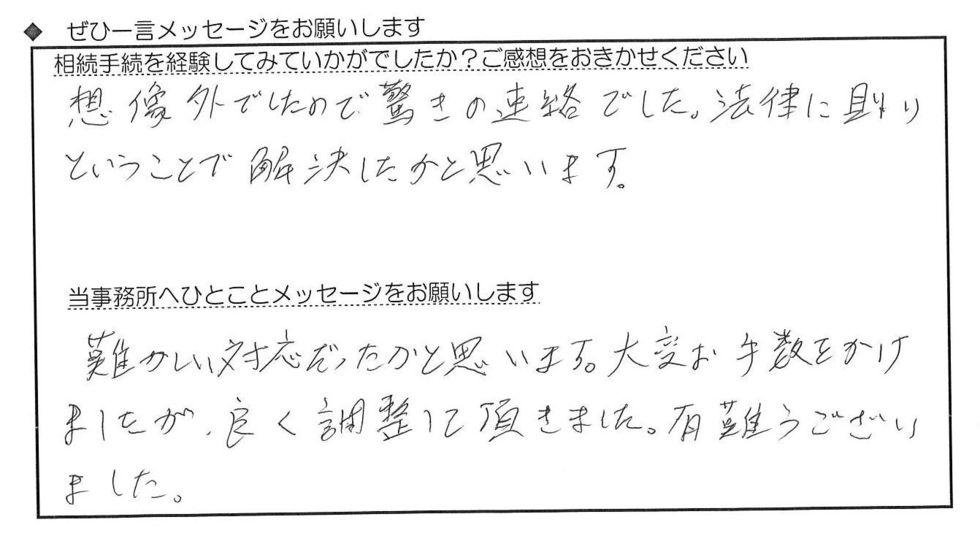 ◆ ぜひ一言メッセージをお願いします
相続手続を経験してみていかがでしたか？ご感想をおきかせください
想像外でしたので驚きの連絡でした。法律に則り
ということで解決したかと思います。
当事務所へひとことメッセージをお願いします
難かしい対応だったかと思います。大変お手数をかけ
ましたが、良く調整して頂きました。有難うござい
ました。